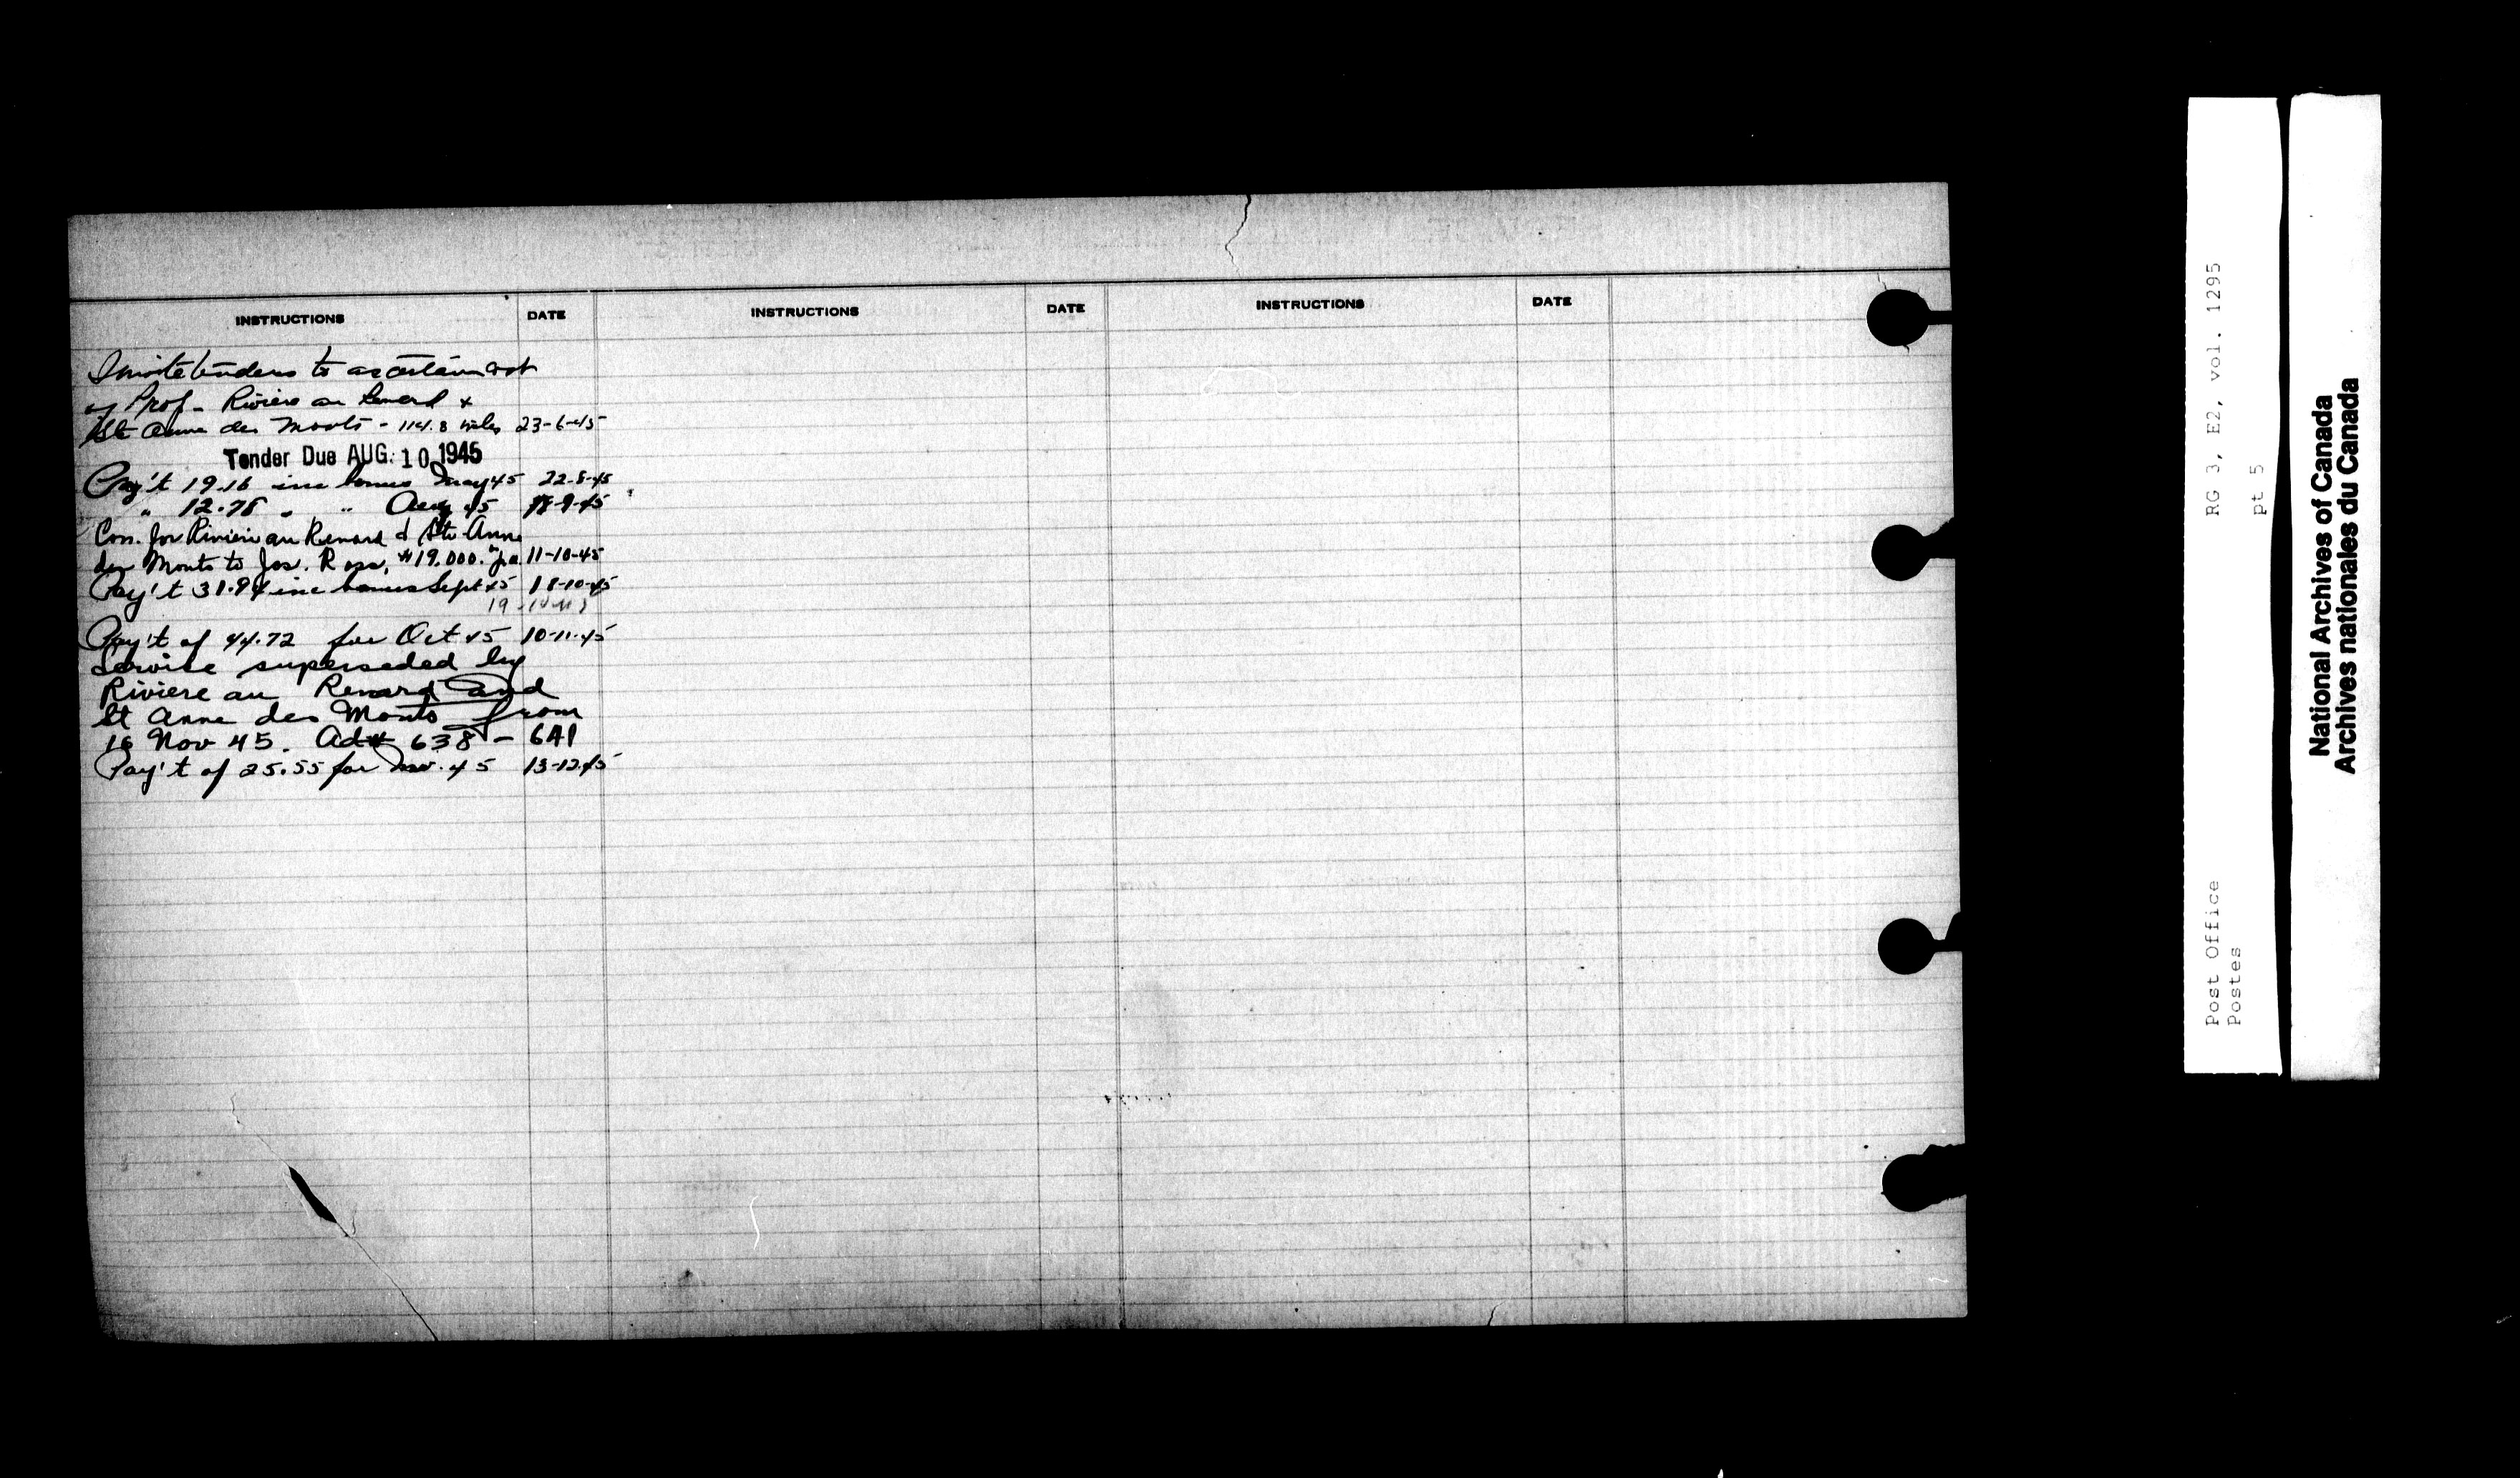 INSTRUCTIONS DATE INSTRUCTIONS DATE INSTRUCTIONS DATE
Invite tenders to ascertain cost
of Prop. Riviere au Renard &
Ste Anne des Monts - 114.8 miles 23-6-45
Tender Due AUG. 10 1945
Pay't 19.16 inc bonus May 45 22-8-45
" 12.78 " " Aug 45 18-9-45
Con. for Riviere au Renard & Ste Anne
des Monts to Jos. Ross, $19,000. pa. 11-10-45
Pay't 31.94 inc bonus Sept 45 18-10-45
Pay't of 44.72 for Oct 45 10-11-45
Service superseded by
Riviere au Renard and
St Anne des Monts from
16 Nov 45. Ad# 638 - 6A1
Pay't of 25.55 for Nov. 45 13-12-45
RG 3, E2, vol. 1295
pt 5
Post Office
Postes
National Archives of Canada
Archives nationales du Canada